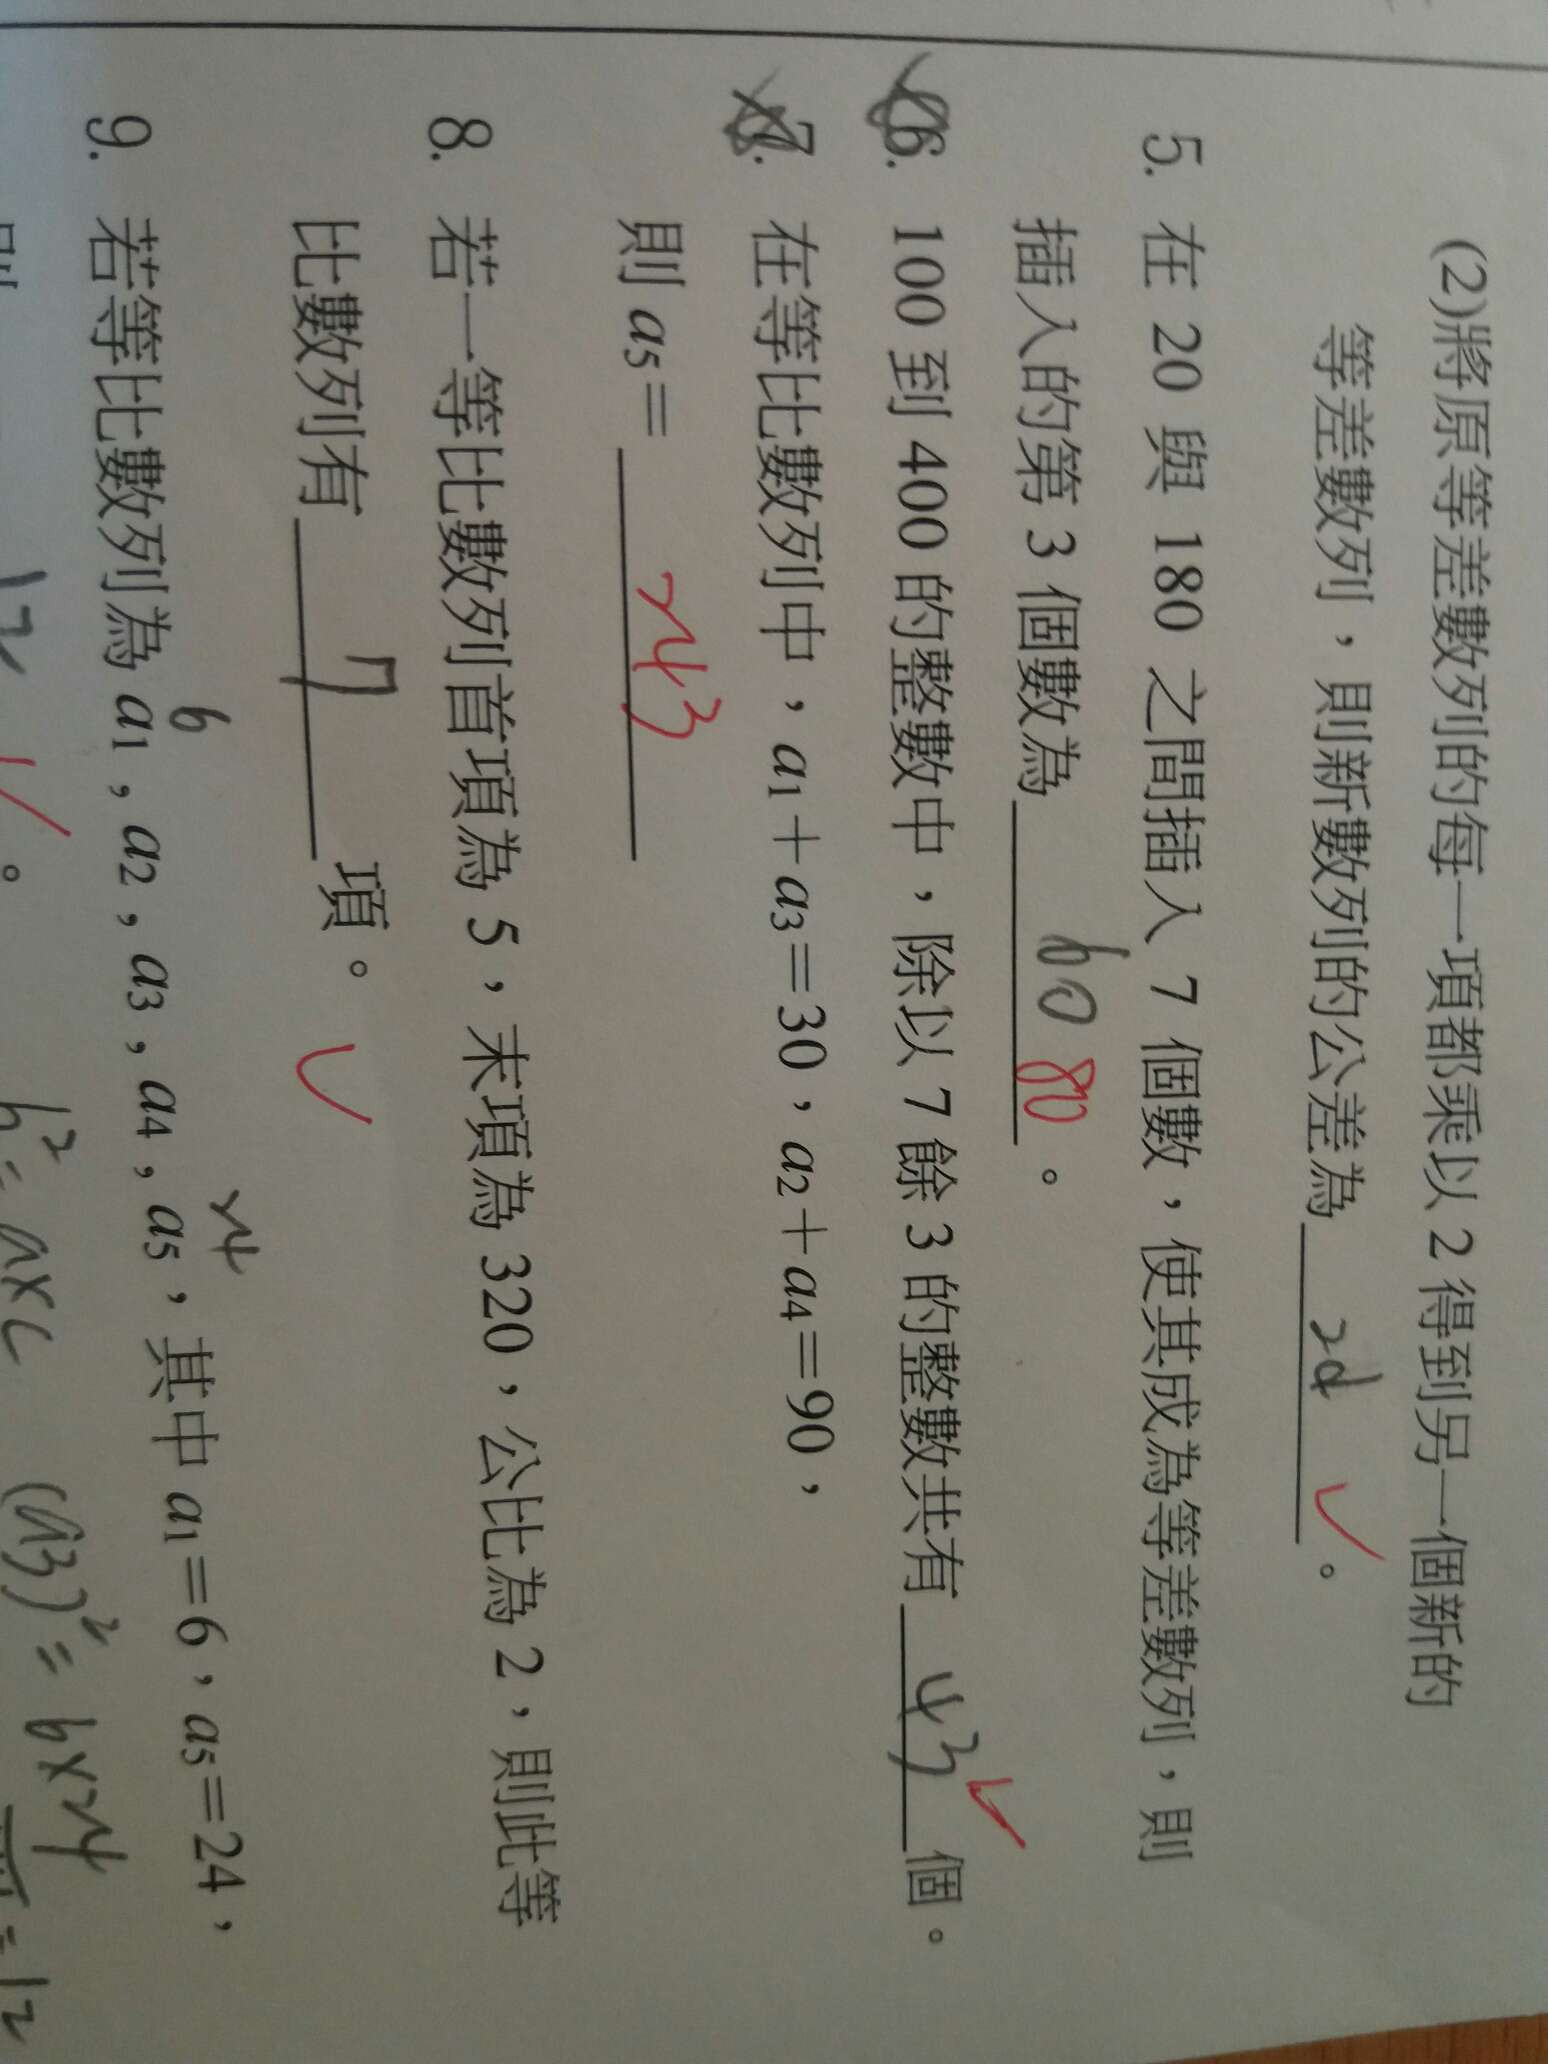 (2)將原等差數列的每一項都乘以 2 得到另一個新的
等差數列，則新數列的公差為 2d ✓。
5. 在 20 與 180 之間插入 7 個數，使其成為等差數列，則
插入的第 3 個數為 60 80。
6. 100 到 400 的整數中，除以 7 餘 3 的整數共有 43 ✓ 個。
7. 在等比數列中，a1＋a3＝30，a2＋a4＝90，
則 a5＝ 243
8. 若一等比數列首項為 5，末項為 320，公比為 2，則此等
比數列有 7 項。✓
6 24
9. 若等比數列為 a1，a2，a3，a4，a5，其中 a1＝6，a5＝24，
12 ✓。 b²=a×c (a3)²=6×24 =12